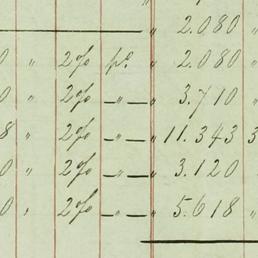 " 2.080 "
0 " 2% po " 2.080 "
0 " 2% —"— " 3.710 "
8 " 2% —"— " 11.343 3
0 " 2% —"— " 3.120
0 " 2% —"— " 5.618 "